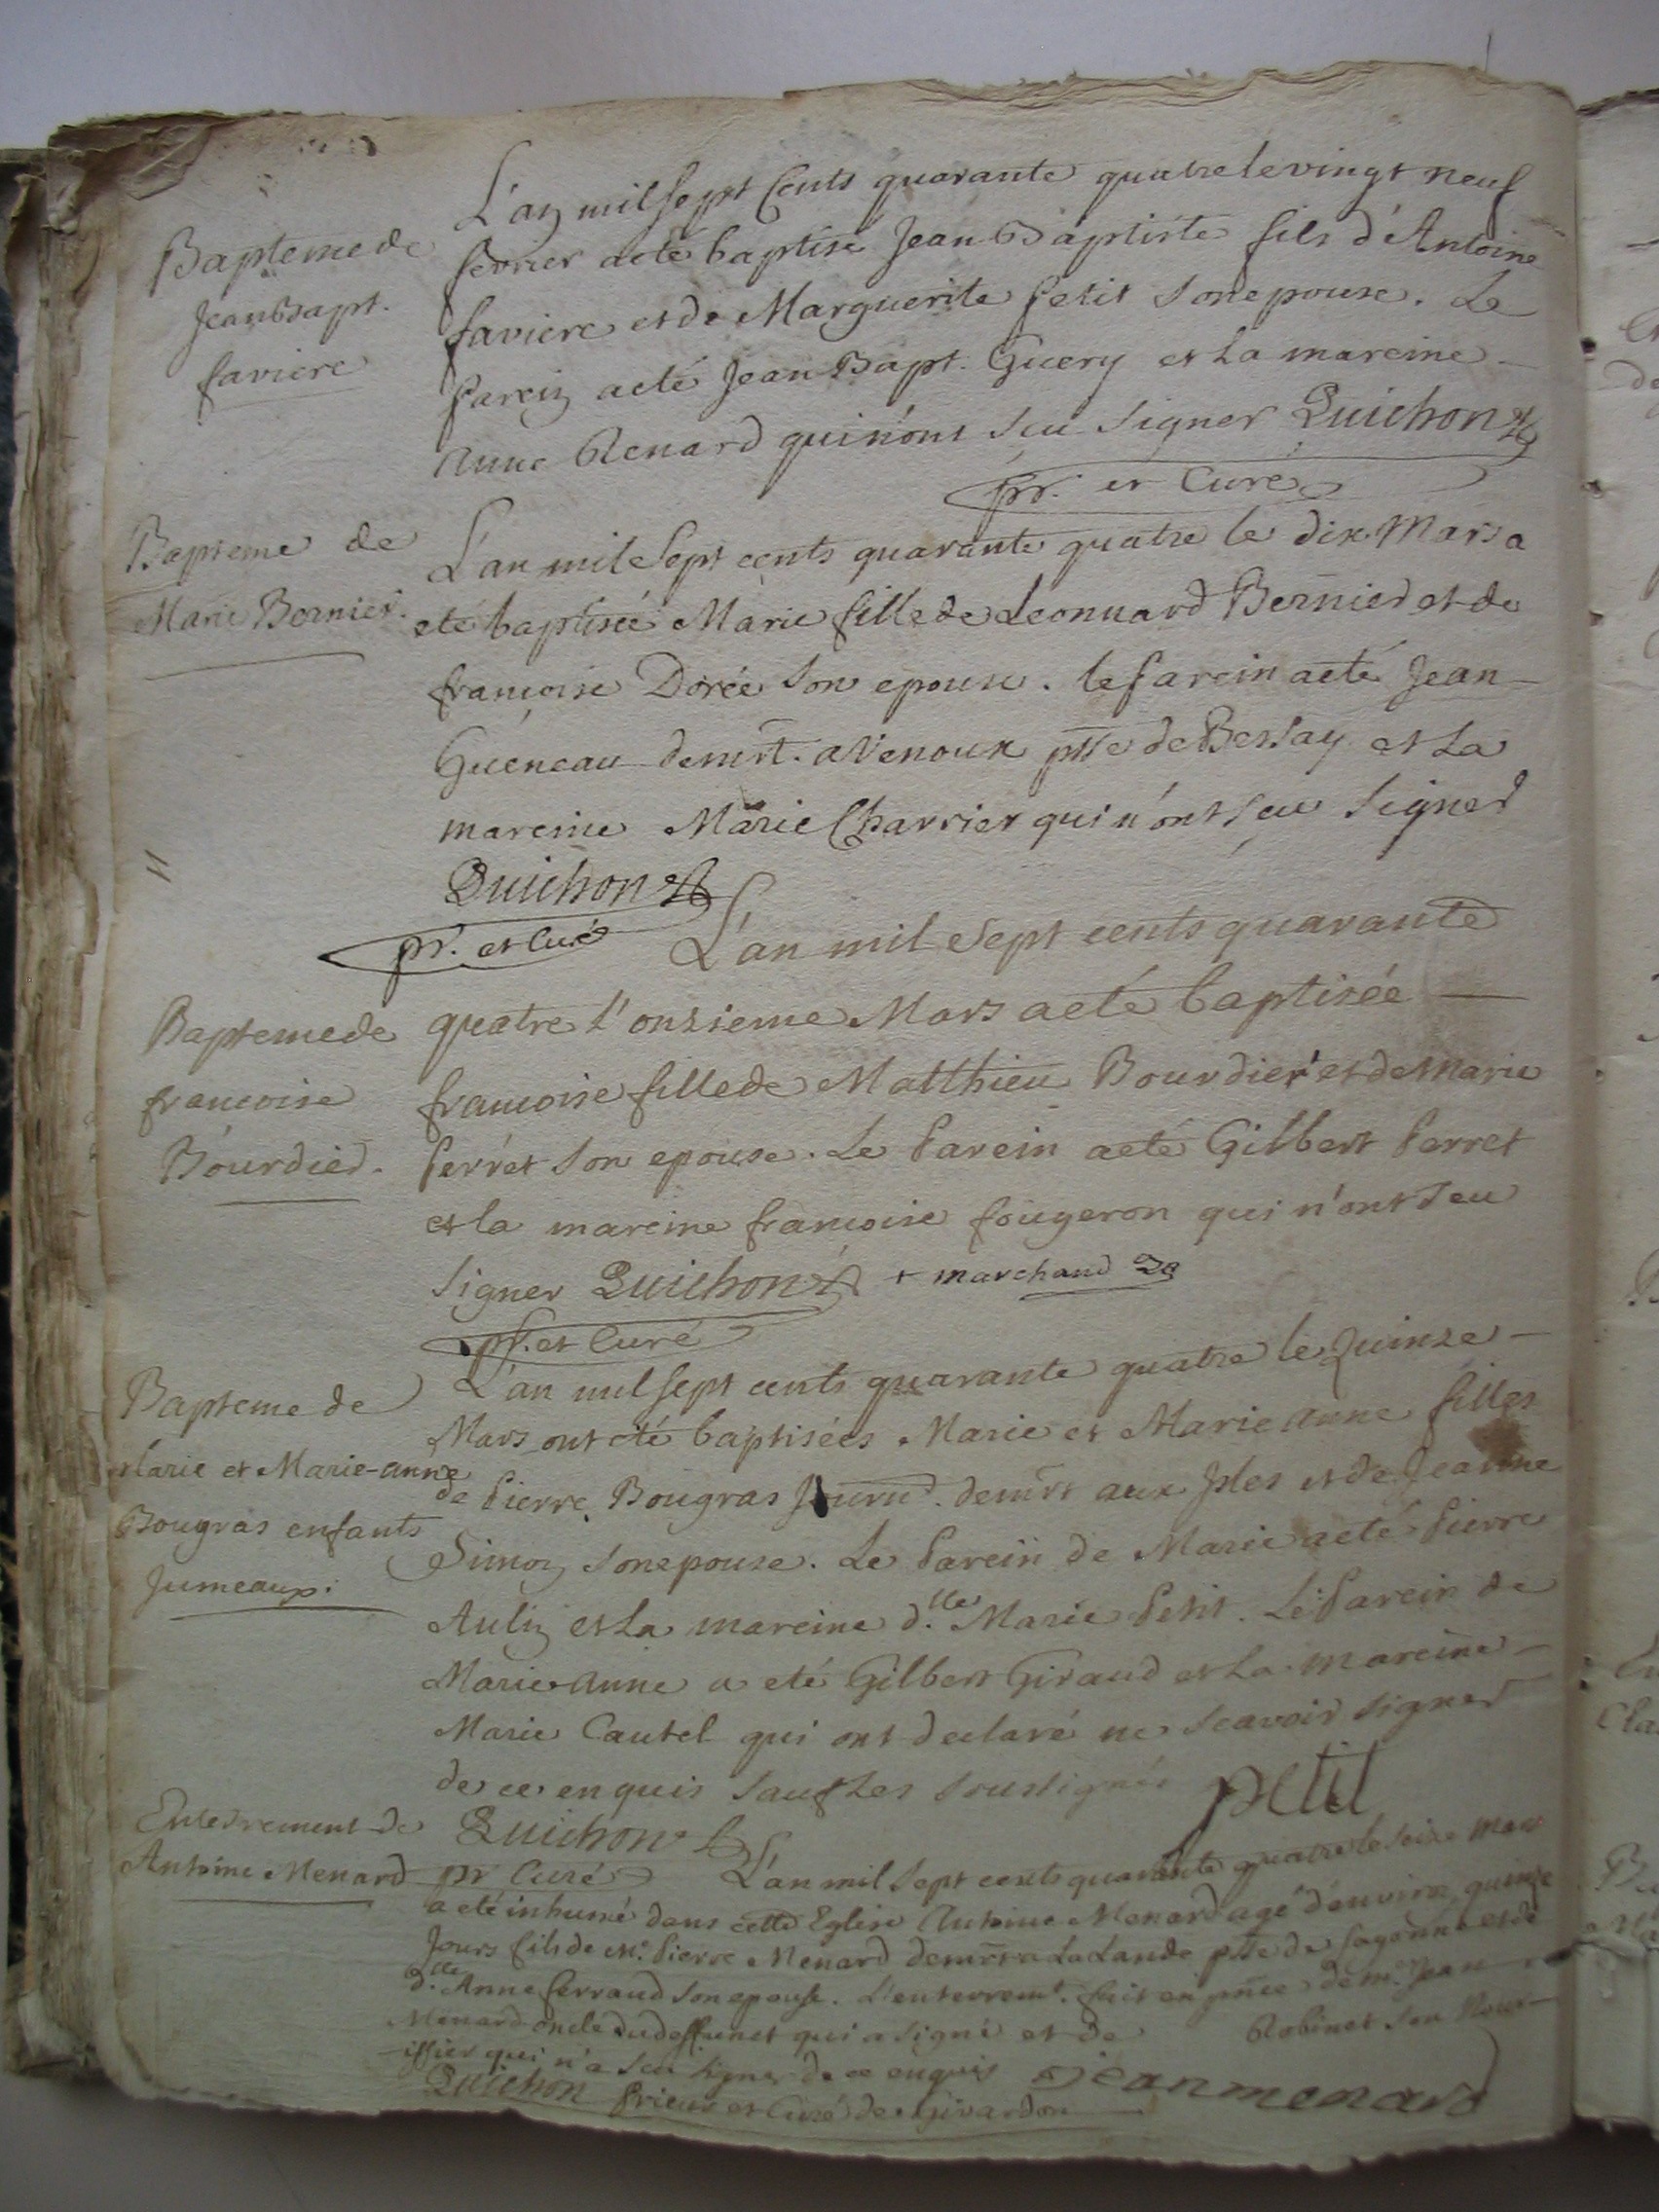 Bapteme de
Jean Bapt.
faviere
L'an mil sept Cents quarante quatre le vingt neuf
fevrier a eté baptisé Jean Baptiste fils d'Antoine
faviere et de Marguerite Petit son epouse. Le
Parein a eté Jean Bapt. Guery et La mareine
Anne Renard qui n'ont sçu signer Quichon
pr. et Curé
Bapteme de
Marie Bernier.
L'an mil Sept cents quarante quatre le dix Mars a
eté baptisée Marie fille de Leonnard Bernier et de
francoise Dorée son epouse. le Parein a eté Jean
Gueneau demrt. a Venoux psse de Bessay et La
mareine Marie Charrier qui n'ont sçu signer
Quichon
pr. et Curé
Baptemede
francoise
Bourdier.
L'an mil Sept cents quarante
quatre l'onzieme Mars a eté baptisée
francoise fille de Matthieu Bourdier + et de Marie
Perret son epouse. Le Parein a eté Gilbert Perret
et la mareine francoise fougeron qui n'ont seu
signer Quichon + marchand
pr. et Curé
Bapteme de
Marie et Marie-anne
Bougras enfants
Jumeaux.
L'an mil sept cents quarante quatre le quinze
Mars ont eté baptisées Marie et Marie anne filles
de Pierre Bougras demrt aux Isles et de Jeanne
Simon son epouse. Le Parein de Marie a eté Pierre
Aulin et La mareine d.lle Marie Petit. Le Parein de
Marie-Anne a eté Gilbert Giraud et La mareine
Marie Cautel qui ont declaré ne scavoir signer
de ce enquis sauf Les soussignés petit
Quichon
pr Curé
Enterrement de
Antoine Menard
L'an mil Sept cents quarante quatre le seize Mars
a eté inhumé dans cette Eglise Antoine Menard agé d'environ quinze
Jours fils de Mr. Pierre Menard demrt a La Lande psse de et de
d.lle Anne ferraud son epouse. L'enterremt. fait en pnce de mr. Jean
Menard oncle du deffunct qui a signé et de Robinet son Nour-
issier qui n'a sçu signer de ce enquis Jean menard
Quichon Prieur et Curé de Givardon